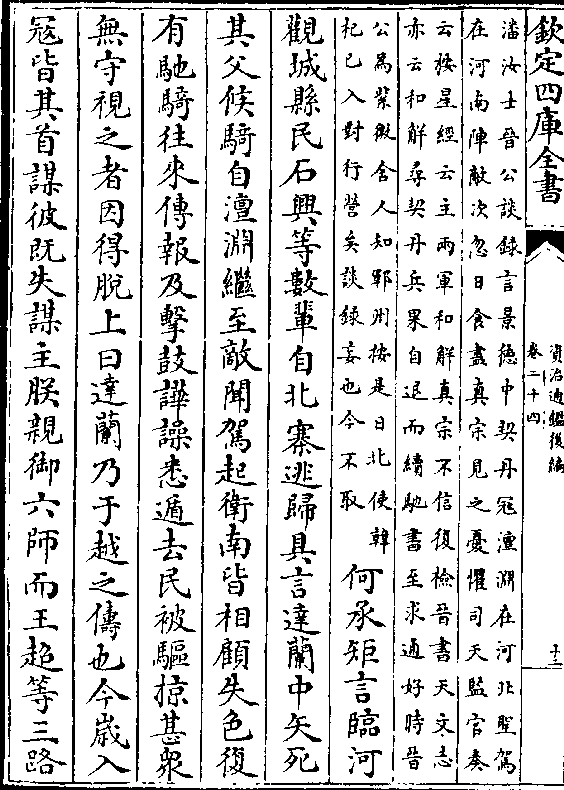 欽定四庫全書
資治通鑑後編
卷二十四
十三
潘汝士晉公談錄言景徳中契丹冦澶淵在河北聖駕
在河南陣敵次忽日食盡真宗見之憂懼司天監官奏
云按星經云主兩軍和解真宗不信復檢晉書天文志
亦云和解尋契丹兵果自退而續馳書至求通好時晉
公爲紫微舍人知鄆州按是日北使韓
杞已入對行營矣談錄妄也今不取
何承矩言臨河
觀城縣民石興等數輩自北寨逃歸具言達蘭中矢死
其父候騎自澶淵繼至敵聞駕起衛南皆相顧失色復
有馳騎往來傳報及擊鼓譁譟悉遁去民被驅掠甚衆
無守視之者因得脫上曰達蘭乃于越之儔也今歳入
冦皆其首謀彼既失謀主朕親御六師而王超等三路